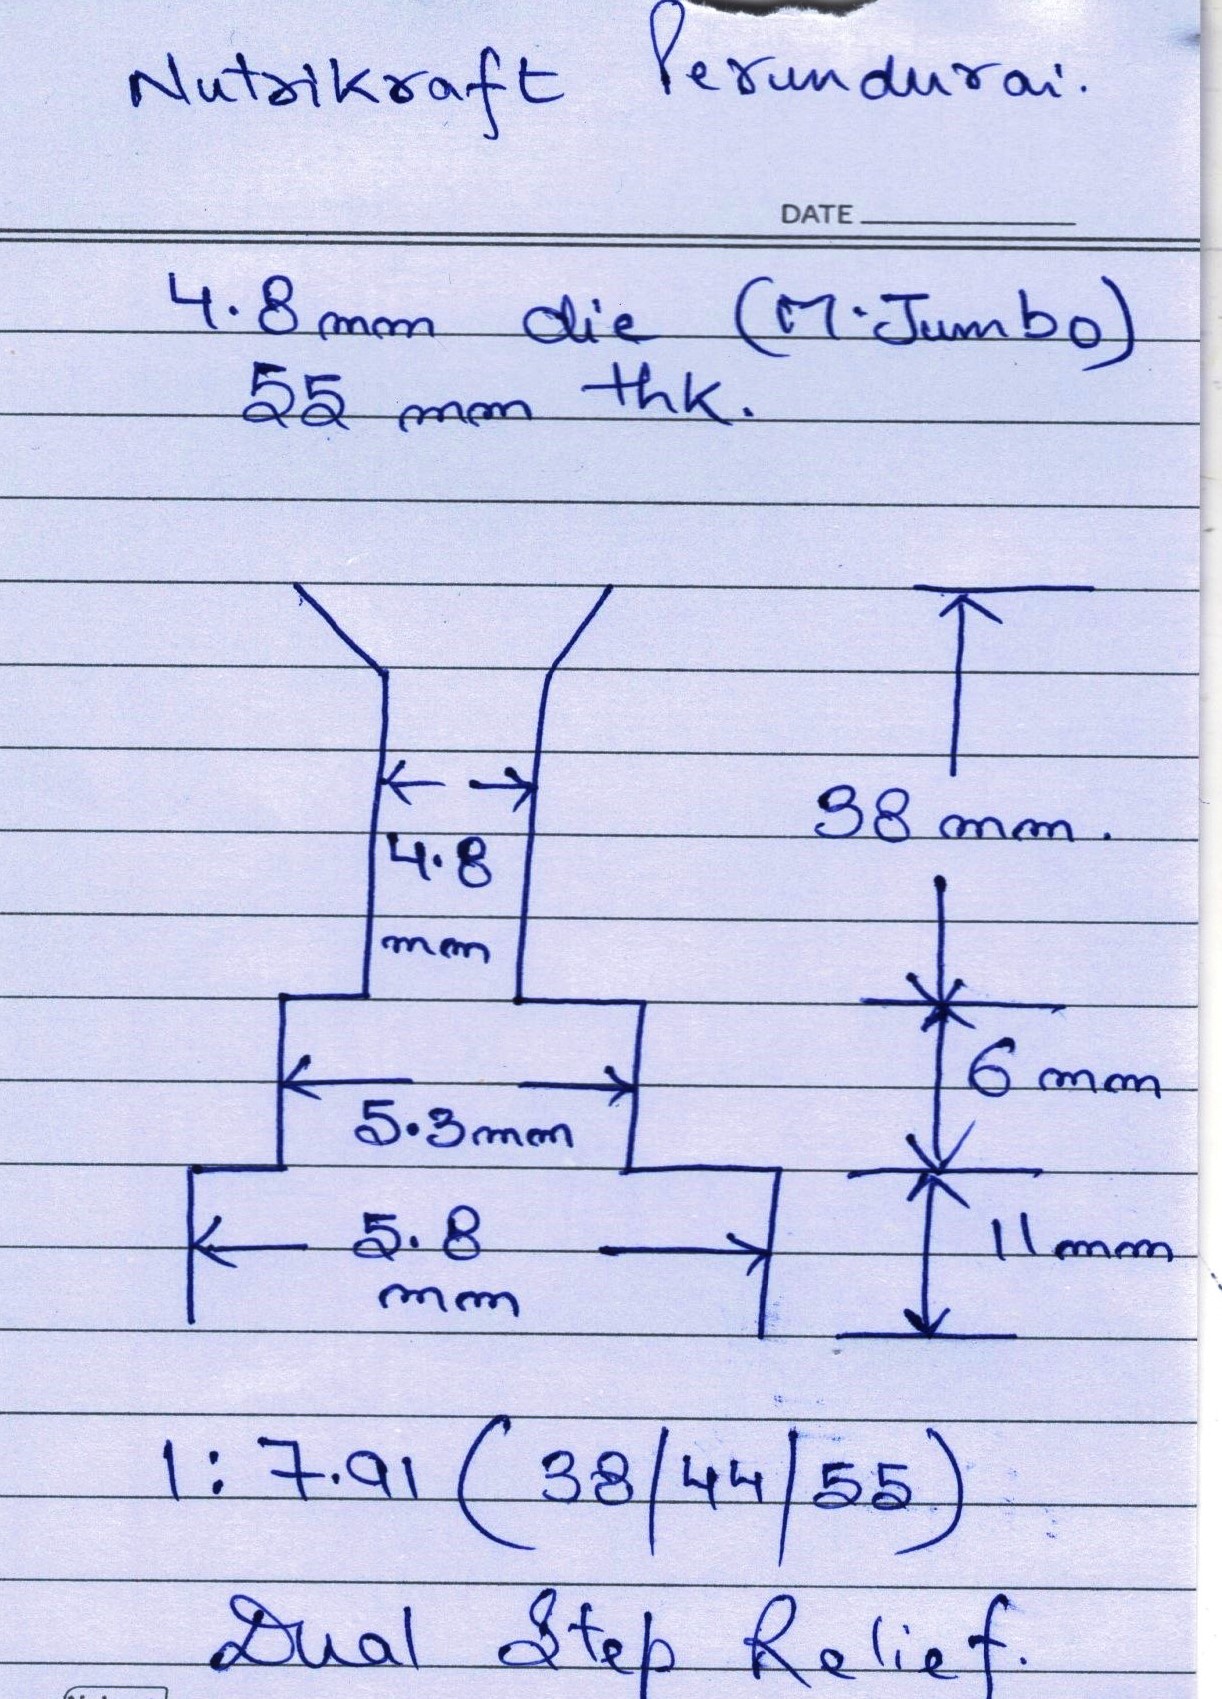 Nutrikraft Perundurai.
DATE
4.8 mm die (M.Jumbo)
55 mm thk.
38 mm.
4.8
mm
6 mm
5.3mm
5.8
mm
11 mm
1: 7.91 (38/44/55)
Dual Step Relief.